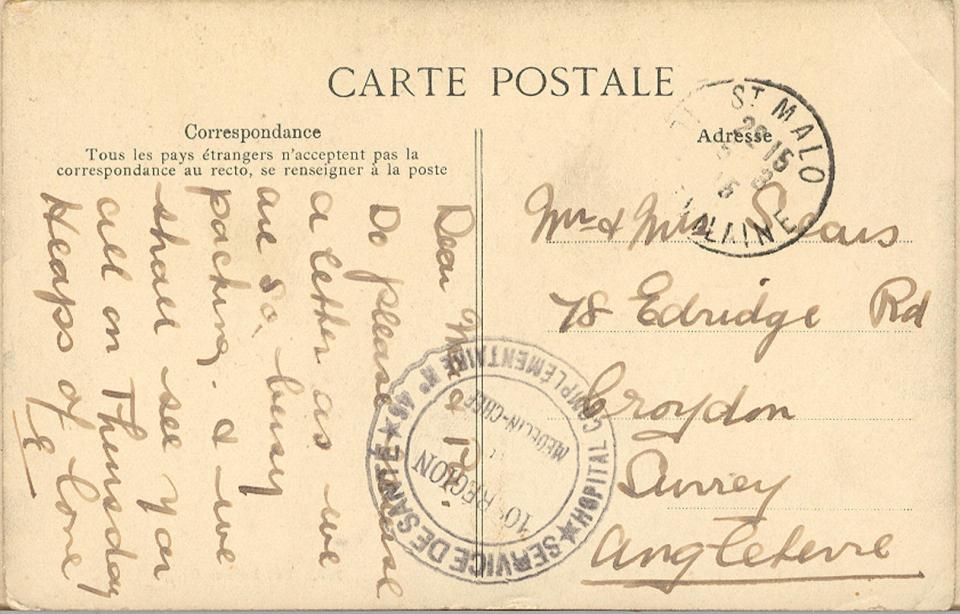 CARTE POSTALE
Correspondance
Tous les pays étrangers n'acceptent pas la
correspondance au recto, se renseigner à la poste
Adresse
ST MALO
15
Dear M &
Do please
a letter as we
are so, busy
packing. & we
shall see you
all on Thursday
Heaps of love
E
Mr & Mrs
78 Edridge Rd
Croydon
Surrey
Angleterre
HOPITAL COMPLÉMENTAIRE N° 46
SERVICE DE SANTÉ
MEDECIN-CHEF
10e RÉGION